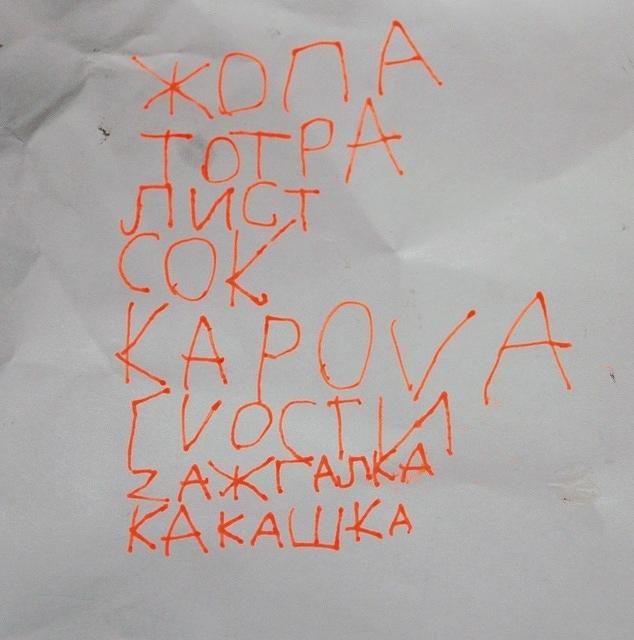 ЖОПА
ТОТРА
ЛИСТ
СОК
КАРОVА
ГVОСТИ
ZАЖГАЛКА
КАКАШКА